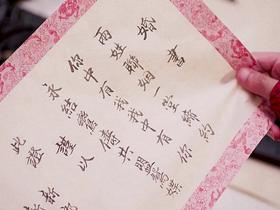 婚書
兩姓聯姻一堂締約
你中有我我中有你
永結鸞儔共盟鴛蝶
謹以
此證
新郎